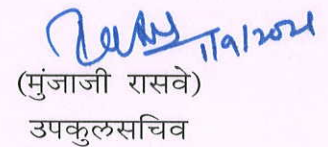 1/9/2021
(मुंजाजी रासवे)
उपकुलसचिव